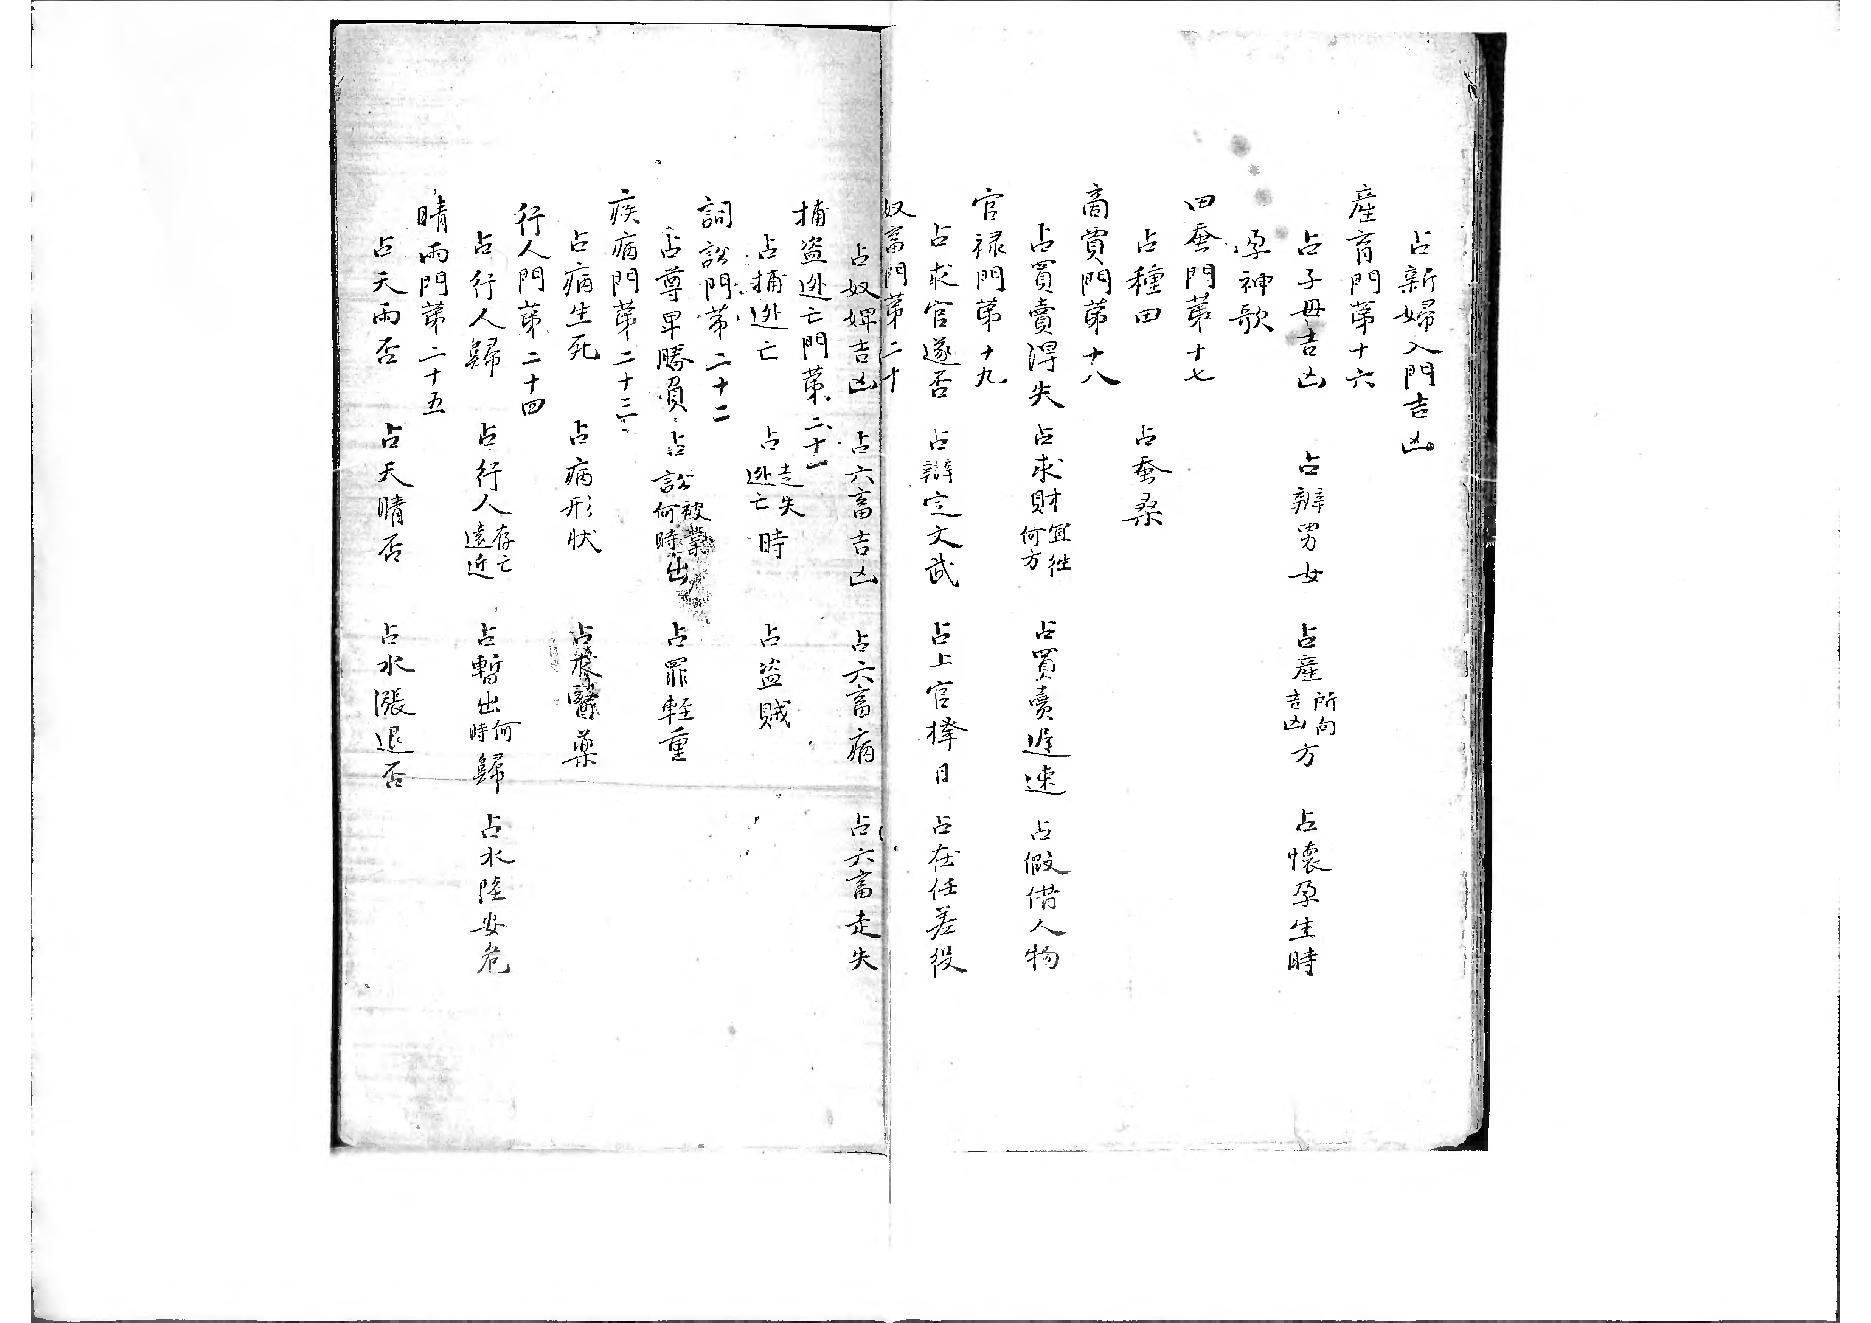 占新婦入門吉凶
產育門第十六
占子母吉凶　占辨男女　占產所向吉凶方　占懷孕生時
孕神歌
田蚕門第十七
占種田　占蚕桑
商賈門第十八
占買賣得失　占求財宜徃何方　占買賣遅速　占假借人物
官祿門第十九
占求官遂否　占辯定文武　占上官擇日　占在任差役
奴畜門第二十
占奴婢吉凶　占六畜吉凶　占六畜病　占六畜走失
捕盜逃亡門第二十一
占捕逃亡　占走失逃亡時　占盜賊
詞訟門第二十二
占尊卑勝負　占訟被禁何時出　占罪輕重
疾病門第二十三
占病生死　占病形狀　占醫藥
行人門第二十四
占行人歸　占行人存亡遠近　占暫出何時歸　占水陸安危
晴雨門第二十五
占天雨否　占天晴否　占水漲退否